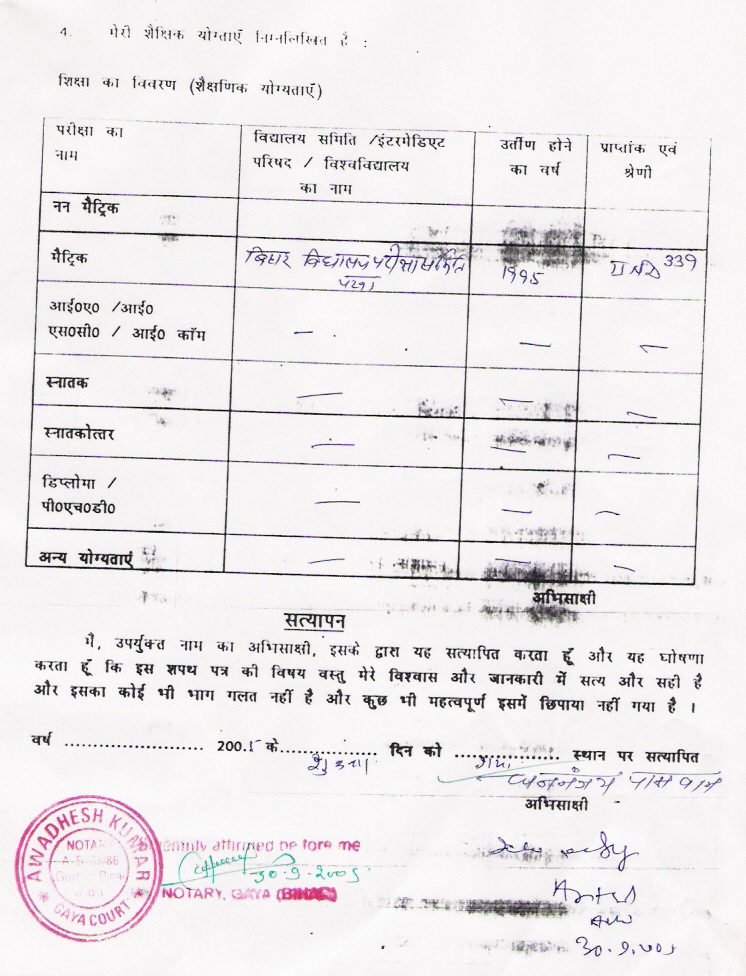 4. मेरी शैक्षिक योग्यताएँ निम्नलिखित है :
शिक्षा का विवरण (शैक्षणिक योग्यताएँ)
परीक्षा का नाम | विद्यालय समिति /इंटरमेडिएट परिषद / विश्वविद्यालय का नाम | उर्तीण होने का वर्ष | प्राप्तांक एवं श्रेणी
नन मैट्रिक
मैट्रिक | बिहार विद्यालय परीक्षा समिति पटना | १९९५ | II ND 339
आई०ए० /आई० एस०सी० / आई० कॉम | — | — | —
स्नातक | — | — | —
स्नातकोत्तर | — | — | —
डिप्लोमा / पी०एच०डी० | — | — | —
अन्य योग्यताएँ | — | — | —
अभिसाक्षी
सत्यापन
मै, उपर्युक्त नाम का अभिसाक्षी, इसके द्वारा यह सत्यापित करता हूँ और यह घोषणा
करता हूँ कि इस शपथ पत्र की विषय वस्तु मेरे विश्वास और जानकारी में सत्य और सही है
और इसका कोई भी भाग गलत नहीं है और कुछ भी महत्वपूर्ण इसमें छिपाया नहीं गया है ।
वर्ष ........................ 200.5 के................ दिन को .................. स्थान पर सत्यापित
शुक्रवा गया
धनंजय पासवान
अभिसाक्षी
AWADHESH KUMAR
NOTARY
GAYA COURT
emnly affirmed before me
30-9-2005
NOTARY, GAYA (BIHAR)
30.9.2005